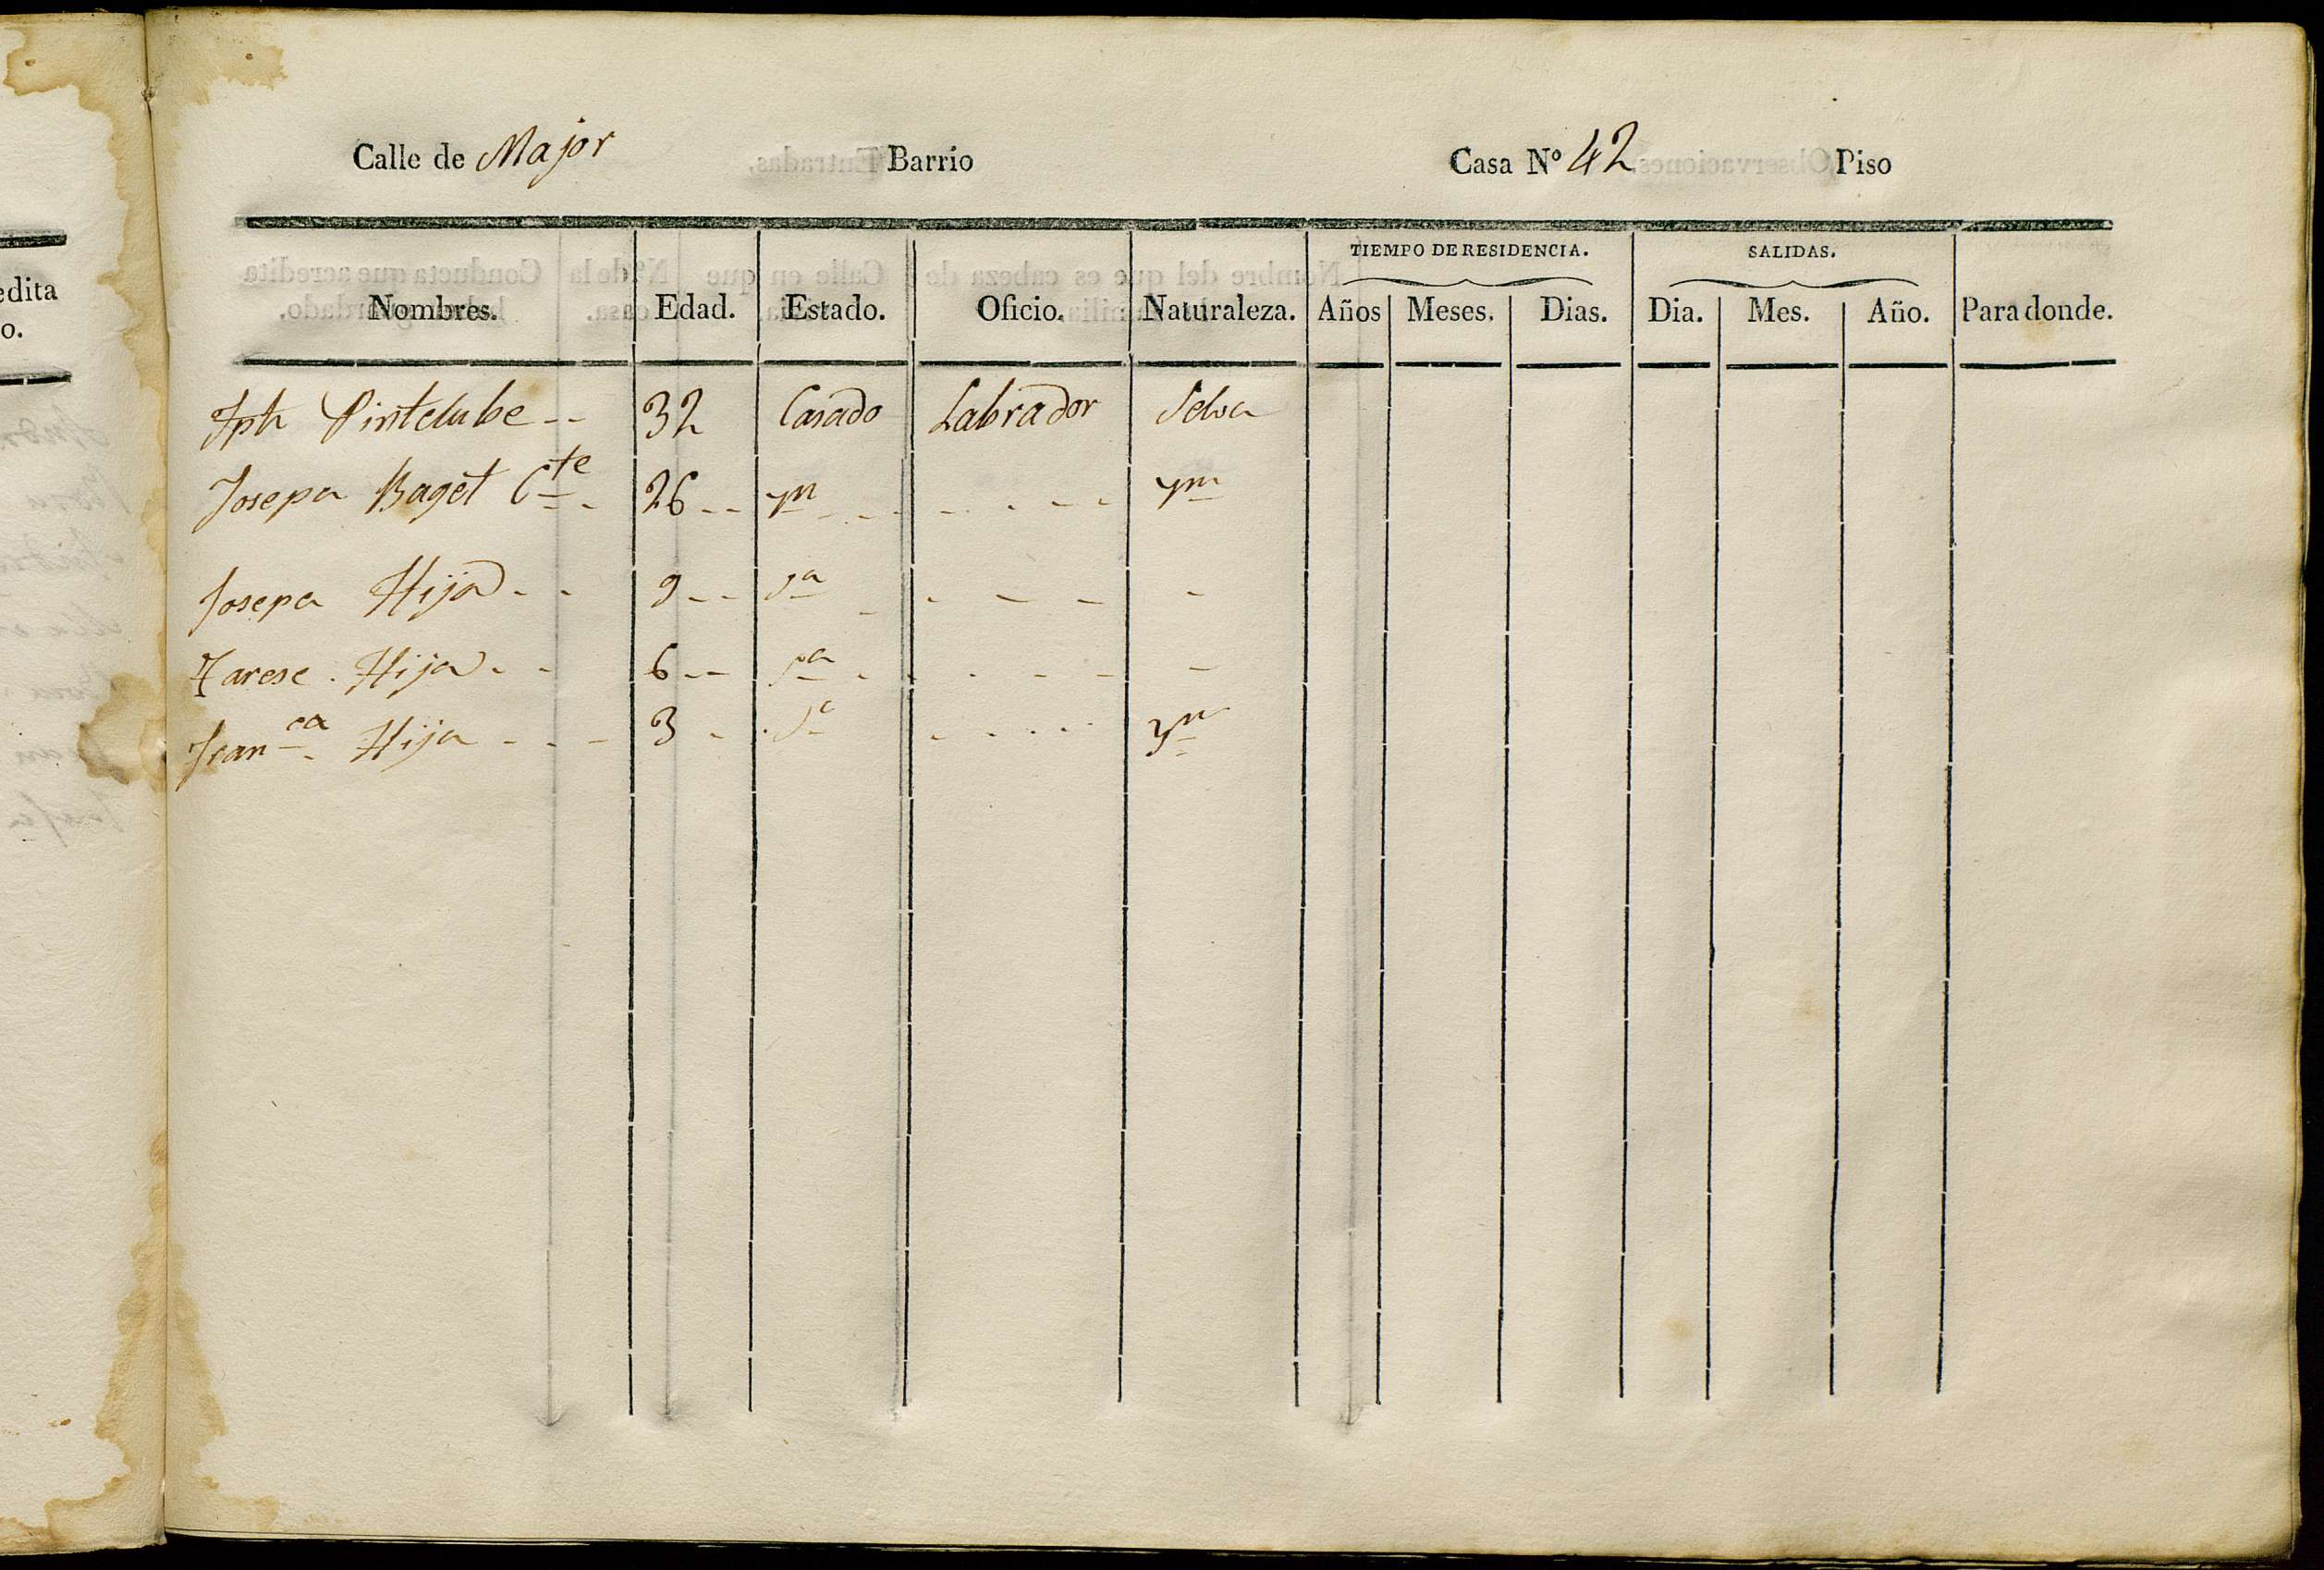 edita
o.
Calle de Major Barrio Casa Nº 42 Piso
TIEMPO DE RESIDENCIA. SALIDAS.
Nombres. Edad. Estado. Oficio. Naturaleza. Años Meses. Dias. Dia. Mes. Año. Para donde.
Jph Pintclube -- 32 Casado Labrador Selva
Josepa Baget Cte 26 -- ym - - - - - - - ym
Josepa Hija - - 9 -- sa - - - - -
Tarese . Hija - - 6 -- sa - - - - - -
Franca Hija - - - 3 - sa - - - - ym